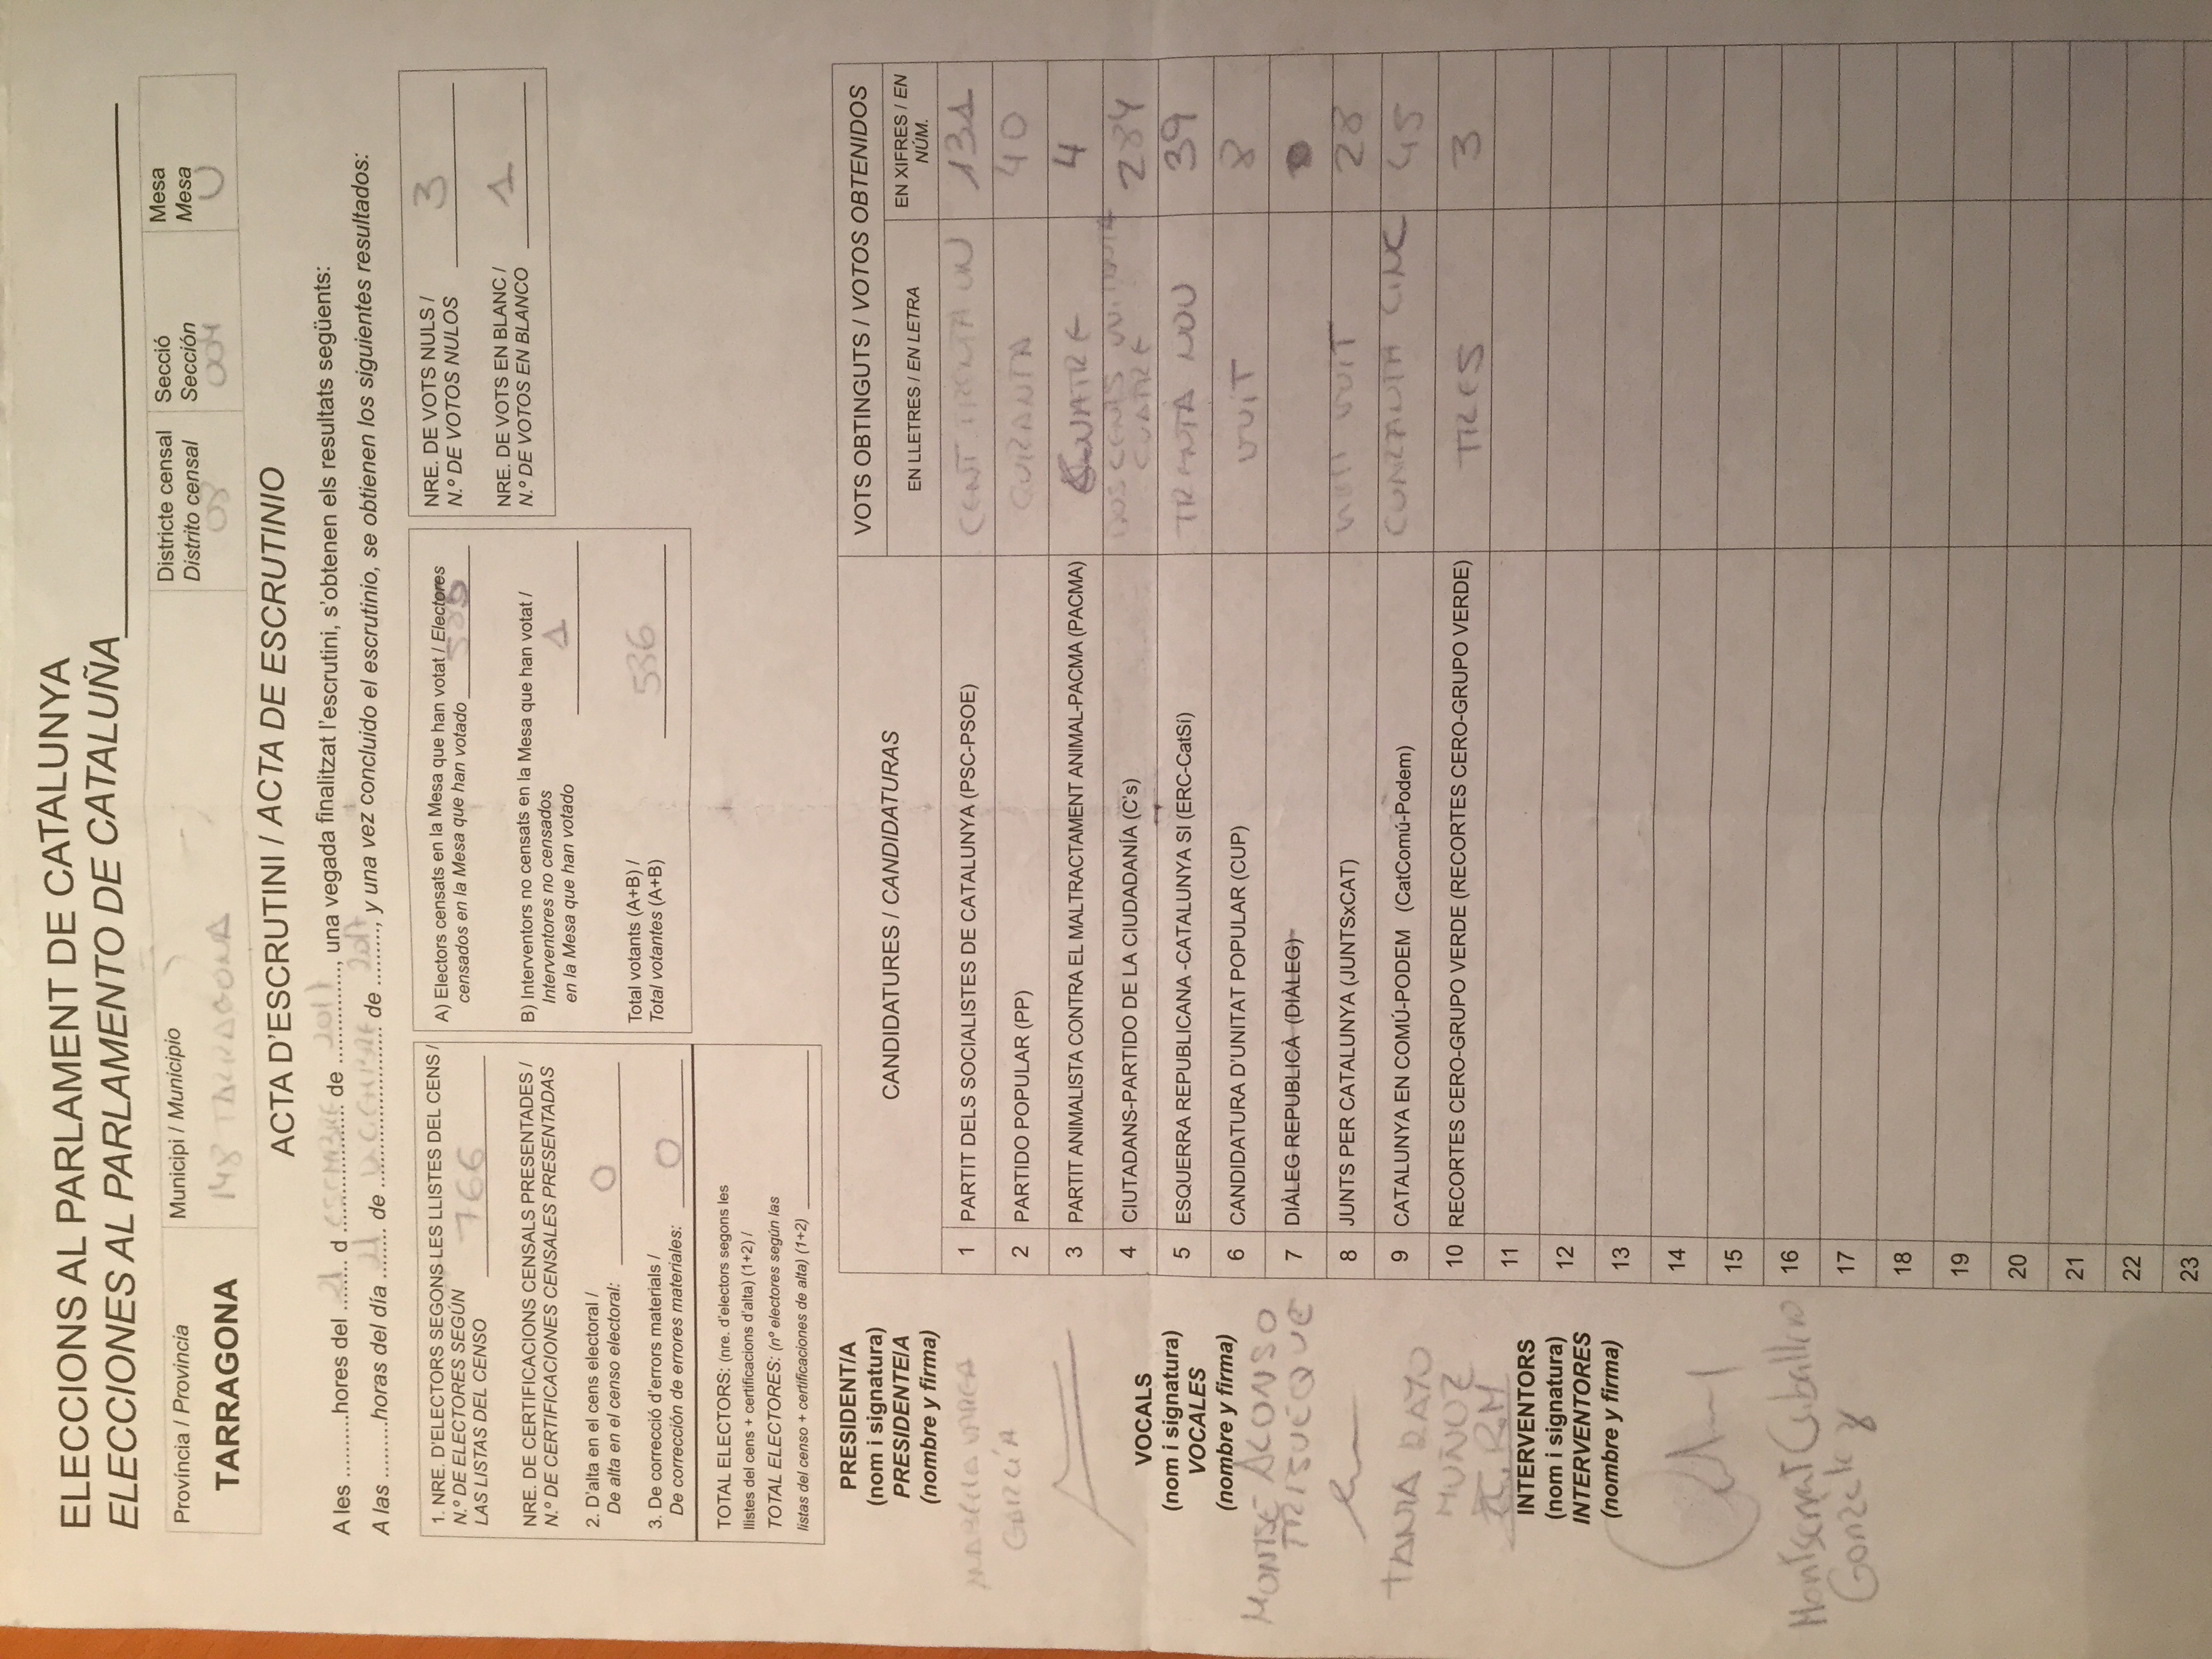 ELECCIONS AL PARLAMENT DE CATALUNYA
ELECCIONES AL PARLAMENTO DE CATALUÑA
Província / Provincia
TARRAGONA
Municipi / Municipio
148 TARRAGONA
Districte censal
Distrito censal
08
Secció
Sección
004
Mesa
Mesa
U
ACTA D'ESCRUTINI / ACTA DE ESCRUTINIO
A les ..........hores del 21 d ESEMBRE de 2017, una vegada finalitzat l'escrutini, s'obtenen els resultats següents:
A las .........horas del día 21 de DICIEMBRE de 2017, y una vez concluido el escrutinio, se obtienen los siguientes resultados:
1. NRE. D'ELECTORS SEGONS LES LLISTES DEL CENS /
N.º DE ELECTORES SEGÚN
LAS LISTAS DEL CENSO 766
NRE. DE CERTIFICACIONS CENSALS PRESENTADES /
N.º DE CERTIFICACIONES CENSALES PRESENTADAS
2. D'alta en el cens electoral /
De alta en el censo electoral: 0
3. De correcció d'errors materials /
De corrección de errores materiales: 0
TOTAL ELECTORS: (nre. d'electors segons les
llistes del cens + certificacions d'alta) (1+2) /
TOTAL ELECTORES: (nº electores según las
listas del censo + certificaciones de alta) (1+2)
A) Electors censats en la Mesa que han votat / Electores
censados en la Mesa que han votado 585
B) Interventors no censats en la Mesa que han votat /
Interventores no censados
en la Mesa que han votado 1
Total votants (A+B) /
Total votantes (A+B) 586
NRE. DE VOTS NULS /
N.º DE VOTOS NULOS 3
NRE. DE VOTS EN BLANC /
N.º DE VOTOS EN BLANCO 1
PRESIDENT/A
(nom i signatura)
PRESIDENTE/A
(nombre y firma)
GARCÍA
VOCALS
(nom i signatura)
VOCALES
(nombre y firma)
MONTSE ALONSO
TRISUEQUE
TANIA RAYO
MUÑOZ
T.R.M
INTERVENTORS
(nom i signatura)
INTERVENTORES
(nombre y firma)
Montserrat Caballero
Gonzalez
CANDIDATURES / CANDIDATURAS
VOTS OBTINGUTS / VOTOS OBTENIDOS
EN LLETRES / EN LETRA
EN XIFRES / EN
NÚM.
1 PARTIT DELS SOCIALISTES DE CATALUNYA (PSC-PSOE) CENT TRENTA UN 131
2 PARTIDO POPULAR (PP) QURANTA 40
3 PARTIT ANIMALISTA CONTRA EL MALTRACTAMENT ANIMAL-PACMA (PACMA) QUATRE 4
4 CIUTADANS-PARTIDO DE LA CIUDADANÍA (C's) DOS CENTS VUITANTA
CUATRE 284
5 ESQUERRA REPUBLICANA -CATALUNYA SI (ERC-CatSí) TRENTA NOU 39
6 CANDIDATURA D'UNITAT POPULAR (CUP) VUIT 8
7 DIÀLEG REPUBLICÀ (DIÀLEG)
8 JUNTS PER CATALUNYA (JUNTSxCAT) VUIT 28
9 CATALUNYA EN COMÚ-PODEM (CatComú-Podem) CINC 45
10 RECORTES CERO-GRUPO VERDE (RECORTES CERO-GRUPO VERDE) TRES 3
11
12
13
14
15
16
17
18
19
20
21
22
23